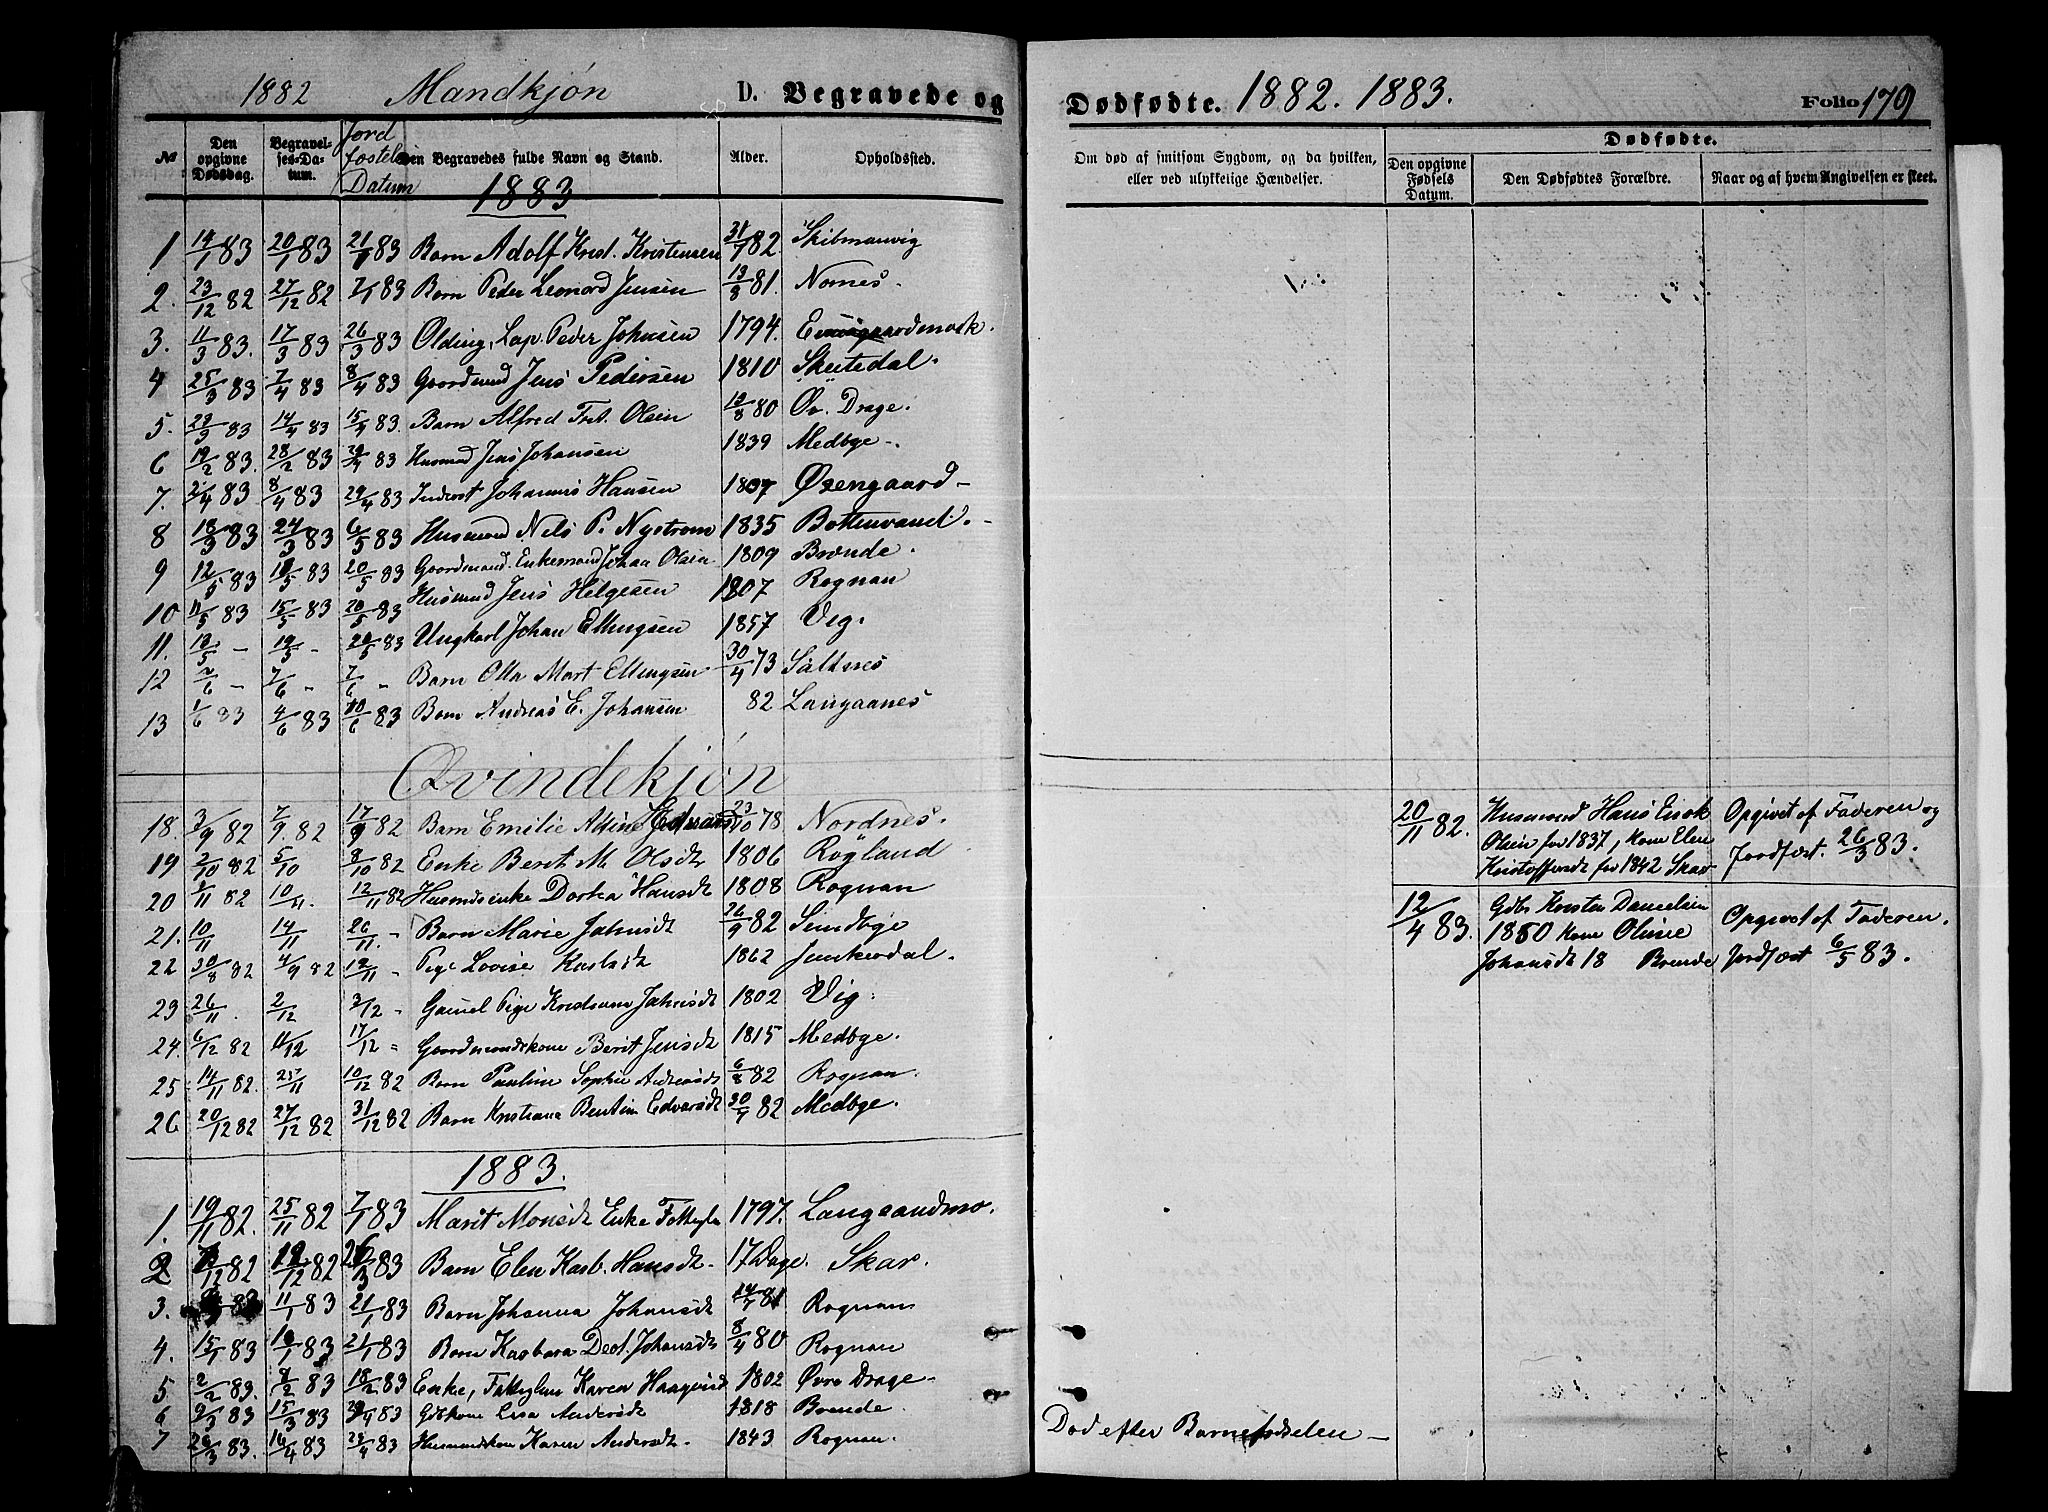 1882 Mandkjøn D. Begravede og
Dødfødte. 1882. 1883. Folio 179
№ Den opgivne Dødsdag. Begravelses-Datum. Jordfæstels Datum Den Begravedes fulde Navn og Stand. Alder. Opholdssted.
Om død af smitsom Sygdom, og da hvilken, eller ved ulykkelige Hændelser. Dødfødte. Den opgivne Fødsels Datum. Den Dødfødtes Forældre. Naar og af hvem Angivelsen er skeet.
1883
1 19/1 83 20/1 83 21/1 83 Barn Adolf Krist. Kristensen 31/7 82 Skibmanvig
2. 23/12 82 27/12 82 7/1 83 Barn Peder Leonard Jensen 13/8 81. Nornes.
3. 11/3 83. 17/3 83 26/3 83 Olding, Lap. Peder Johnsen 1794.
4 25/3 83 7/4 83 8/4 83 Gaardmand Jens Pedersen 1810 Skeitedal.
5. 29/3 83 14/4 83 15/4 83. Barn Alfred Olsen 19/8 80 Øv. Drage.
6 19/2 83. 28/2 83 29/4 83 Husmand Jens Johansen 1839 Medbye.
7. 2/4 83 8/4 83 29/4 83 Inderst Johannes Hansen 1807 Øxengaard
8 18/3 83 24/3 83 6/5 83 Husmand Nils P. Nystrøm 1835 Bottenvand.
9 12/5 83 18/5 83 20/5 83 Gaardmand. Enkemand Johan Olsen 1809 Brænde.
10 11/5 83 15/5 83 20/5 83 Husmand Jens Helgesen 1807 Rognan
11. 13/5 - 19/5 - 20/5 83 Ungkarl Johan Ellingsen 1857 Vig.
12 2/6 - 7/6 - 7/6 - Barn Otto Mart Ellingsen 30/4 73 Saltnes
13 1/6 83 4/6 83 10/6 83 Barn Andreas E. Johansen 82 Langaanes
Qvindekjøn
18. 3/9 82 7/9. 82 17/9 82 Barn Emilie Aldine 23/10 78 Nordnes.
19 2/10 82 5/10 8/10 82 Enke Berit M. Olsdt 1806 Røgland
20 3/11 82 10/11. 12/11 82 Husmdsenke Dortea Hansdt 1808 Rognan
21. 10/11 14/11 26/11. - Barn Marie Jahnsdt 26/9 82 Sundbye
22 30/8 82 4/9 82 19/11 - Pige Lovise Karlsdt 1862 Junkerdal.
23 26/11. 2/12 3/12 - Gamel Pige Kristiana Jahnsdt 1802 Vig.
24. 6/12 82 11/12 17/12 - Gaardmandskone Berit Jensdt 1815 Medbye.
25 14/11 82. 25/11 10/12 82 Barn Pauline Sophie Andreasdt 6/8 82 Rognan.
26 20/12 82 27/12 82 31/12 82 Barn Kristiana Bentine Edvarsdt 30/7 82 Medbye.
20/11 82. Husmand Hans Enok Opgivet af Faderen og
Olsen før 1837, Kone Elen Jordfæst. 26/3 83.
Kristoffersdt før 1842 Skar
12/4 83. Gdbr Kristen Danielsen Opgivet af Faderen.
1850 Kone Oline
Johansdt 18 Brænde Jordfæst 6/5 83.
1883.
1. 19/11 82. 25/11 82 7/1 83 Marit Monsdt Enke Fattiglem 1797. Langsandmo.
2 12 82 19/12 82 26/3 83 Barn Elen Karb. Hansdt. 17 Dage. Skar.
3. 83 11/1 83 21/1 83 Barn Johanna Johansdt 14/7 81 Rognan
4. 15/1 83 1 83 21/1 83 Barn Karbara Johansdt 8/4 80 Rognan
5 2/2 83. 8/2 83 18/2 83 Enke, Fattiglem Karen Haagensd 1802 Øvre Drage
6 9/3 83 15/3 83 29/4 83 Gdbkone Lisa Andersdt 1818 Brænde.
7 26/3 83. 16/4 83 29/4 83 Husmandskone Karen Andersdt. 1843 Rognan. Død efter Barnefødselen